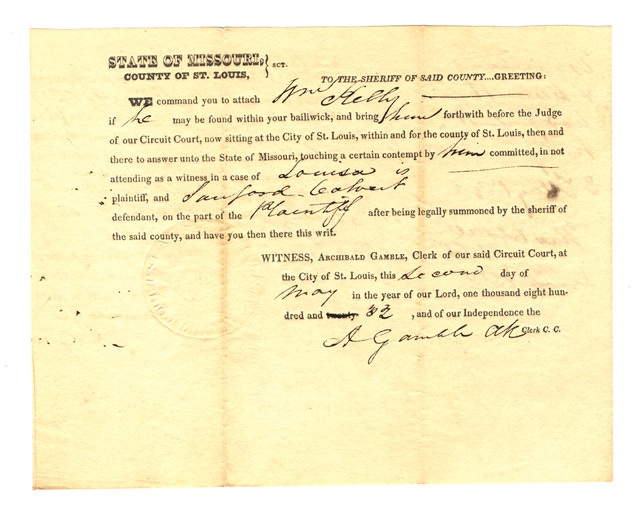 STATE OF MISSOURI, } SCT.
COUNTY OF ST. LOUIS,
TO THE SHERIFF OF SAID COUNTY....GREETING:
WE command you to attach Wm Kelly
if he may be found within your bailiwick, and bring him forthwith before the Judge
of our Circuit Court, now sitting at the City of St. Louis, within and for the county of St. Louis, then and
there to answer unto the State of Missouri, touching a certain contempt by him committed, in not
attending as a witness in a case of Louisa is
plaintiff, and Sanford Calvert
defendant, on the part of the Plaintiff after being legally summoned by the sheriff of
the said county, and have you then there this writ.
WITNESS, ARCHIBALD GAMBLE, Clerk of our said Circuit Court, at
the City of St. Louis, this second day of
May in the year of our Lord, one thousand eight hun-
dred and twenty 32 , and of our Independence the
A Gamble Clk Clerk C. C.